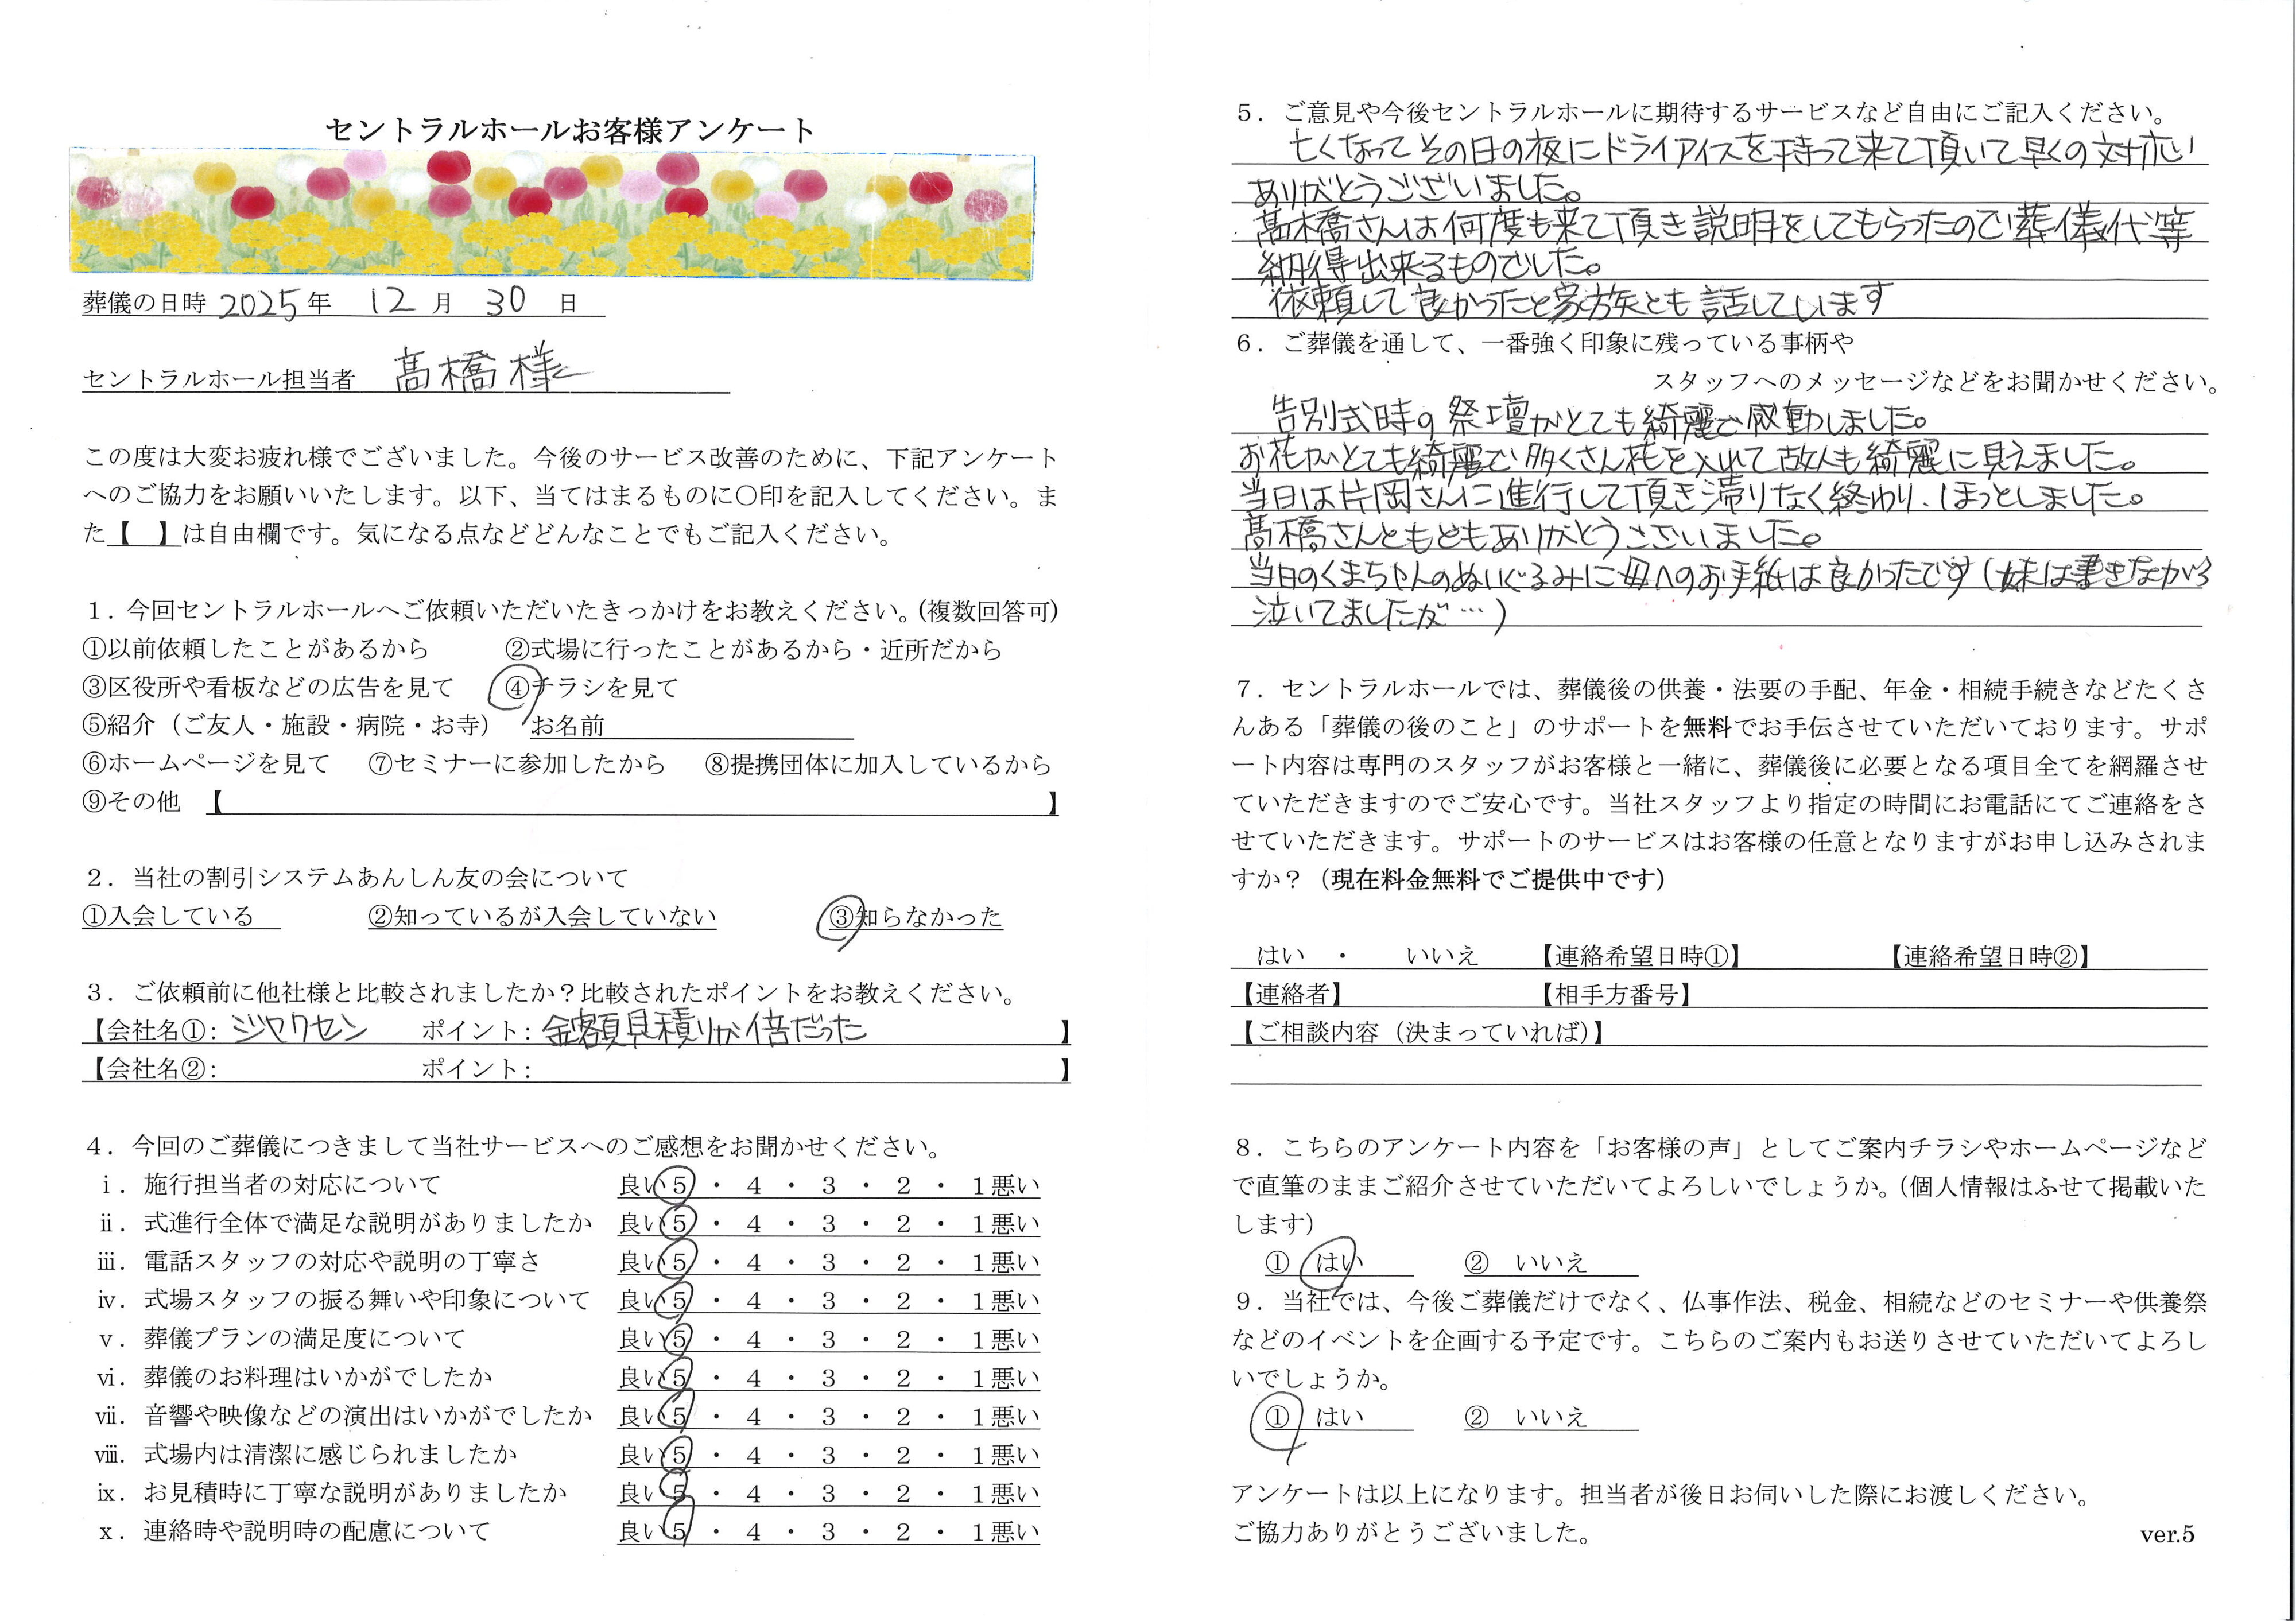 セントラルホールお客様アンケート
葬儀の日時 2025年 12月 30日
セントラルホール担当者 髙橋様
この度は大変お疲れ様でございました。今後のサービス改善のために、下記アンケート
へのご協力をお願いいたします。以下、当てはまるものに〇印を記入してください。ま
た【 】は自由欄です。気になる点などどんなことでもご記入ください。
１．今回セントラルホールへご依頼いただいたきっかけをお教えください。(複数回答可)
①以前依頼したことがあるから ②式場に行ったことがあるから・近所だから
③区役所や看板などの広告を見て ④チラシを見て
⑤紹介（ご友人・施設・病院・お寺） お名前
⑥ホームページを見て ⑦セミナーに参加したから ⑧提携団体に加入しているから
⑨その他 【 】
２．当社の割引システムあんしん友の会について
①入会している ②知っているが入会していない ③知らなかった
３．ご依頼前に他社様と比較されましたか？比較されたポイントをお教えください。
【会社名①：ジャクセン ポイント：金額見積りが倍だった 】
【会社名②： ポイント： 】
４．今回のご葬儀につきまして当社サービスへのご感想をお聞かせください。
ⅰ．施行担当者の対応について 良い 5 ・ 4 ・ 3 ・ 2 ・ 1 悪い
ⅱ．式進行全体で満足な説明がありましたか 良い 5 ・ 4 ・ 3 ・ 2 ・ 1 悪い
ⅲ．電話スタッフの対応や説明の丁寧さ 良い 5 ・ 4 ・ 3 ・ 2 ・ 1 悪い
ⅳ．式場スタッフの振る舞いや印象について 良い 5 ・ 4 ・ 3 ・ 2 ・ 1 悪い
ⅴ．葬儀プランの満足度について 良い 5 ・ 4 ・ 3 ・ 2 ・ 1 悪い
ⅵ．葬儀のお料理はいかがでしたか 良い 5 ・ 4 ・ 3 ・ 2 ・ 1 悪い
ⅶ．音響や映像などの演出はいかがでしたか 良い 5 ・ 4 ・ 3 ・ 2 ・ 1 悪い
ⅷ．式場内は清潔に感じられましたか 良い 5 ・ 4 ・ 3 ・ 2 ・ 1 悪い
ⅸ．お見積時に丁寧な説明がありましたか 良い 5 ・ 4 ・ 3 ・ 2 ・ 1 悪い
ⅹ．連絡時や説明時の配慮について 良い 5 ・ 4 ・ 3 ・ 2 ・ 1 悪い
５．ご意見や今後セントラルホールに期待するサービスなど自由にご記入ください。
亡くなってその日の夜にドライアイスを持って来て頂いて早くの対応
ありがとうございました。
髙橋さんは何度も来て頂き説明をしてもらったので葬儀代等
納得出来るものでした。
依頼して良かったと家族とも話しています
６．ご葬儀を通して、一番強く印象に残っている事柄や
スタッフへのメッセージなどをお聞かせください。
告別式時の祭壇がとても綺麗で感動しました。
お花がとても綺麗で多くさん花を入れて故人も綺麗に見えました。
当日は片岡さんに進行して頂き滞りなく終わり、ほっとしました。
髙橋さんともどもありがとうございました。
当日のくまちゃんのぬいぐるみに母へのお手紙は良かったです（妹は書きながら
泣いてましたが…）
７．セントラルホールでは、葬儀後の供養・法要の手配、年金・相続手続きなどたくさ
んある「葬儀の後のこと」のサポートを無料でお手伝させていただいております。サポ
ート内容は専門のスタッフがお客様と一緒に、葬儀後に必要となる項目全てを網羅させ
ていただきますのでご安心です。当社スタッフより指定の時間にお電話にてご連絡をさ
せていただきます。サポートのサービスはお客様の任意となりますがお申し込みされま
すか？（現在料金無料でご提供中です）
はい ・ いいえ 【連絡希望日時①】 【連絡希望日時②】
【連絡者】 【相手方番号】
【ご相談内容（決まっていれば）】
８．こちらのアンケート内容を「お客様の声」としてご案内チラシやホームページなど
で直筆のままご紹介させていただいてよろしいでしょうか。(個人情報はふせて掲載いた
します)
① はい ② いいえ
９．当社では、今後ご葬儀だけでなく、仏事作法、税金、相続などのセミナーや供養祭
などのイベントを企画する予定です。こちらのご案内もお送りさせていただいてよろし
いでしょうか。
① はい ② いいえ
アンケートは以上になります。担当者が後日お伺いした際にお渡しください。
ご協力ありがとうございました。 ver.5